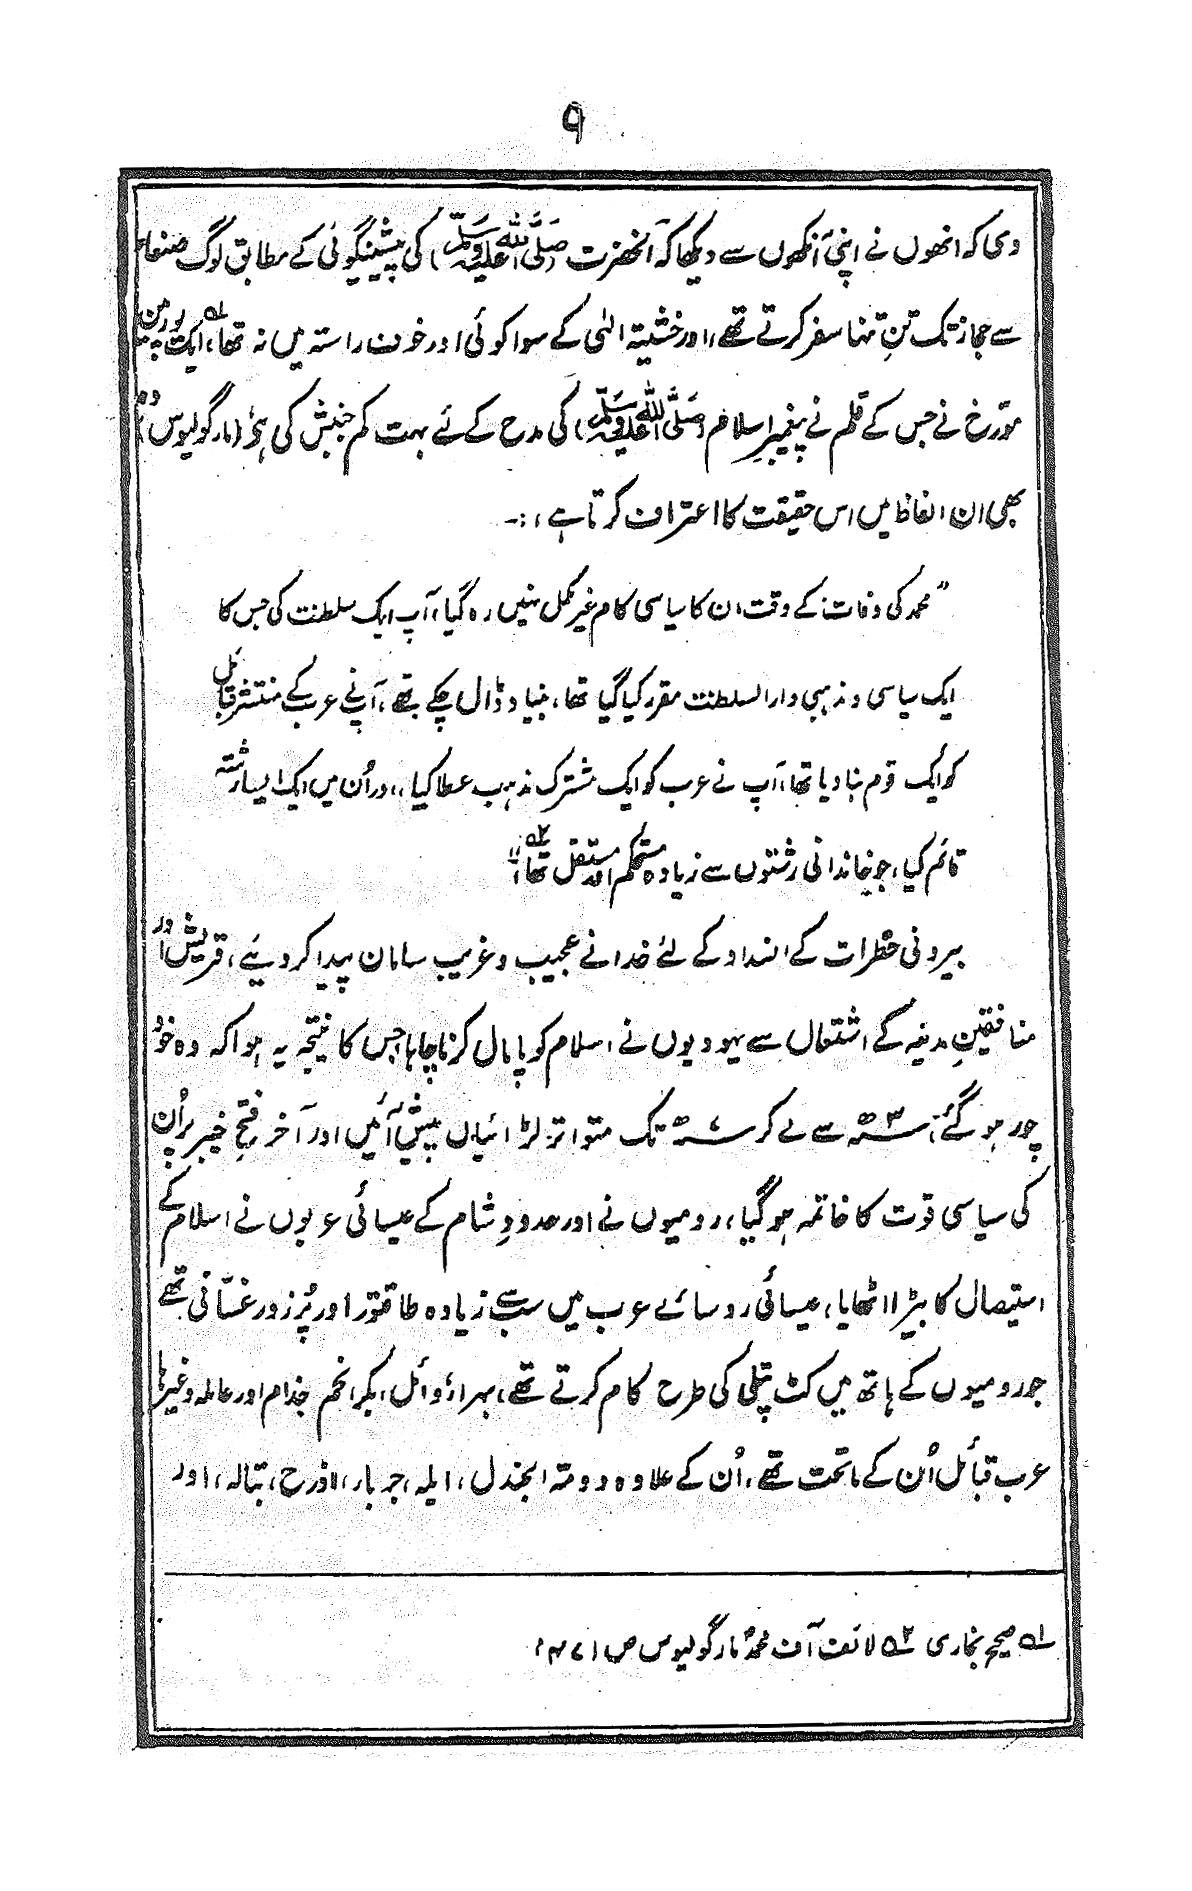 ۹
دی کہ انھوں نے اپنی آنکھوں سے دیکھا کہ آنحضرت (صَلَّی اللہُ عَلَیْہِ وَسَلَّمَ) کی پیشینگوئی کے مطابق لوگ صنعاء
سے حجاز تک تنِ تنہا سفر کرتے تھے، اور خشیۃ الٰہی کے سوا کوئی اور خوف راستہ میں نہ تھا، ۱؎ ایک یورپین
مورّخ نے جس کے قلم نے پیغمبرِ اسلام (صَلَّی اللہُ عَلَیْہِ وَسَلَّمَ) کی مدح کے لئے بہت کم جنبش کی ہو، (مارگولیوس) وہ
بھی ان الفاظ میں اس حقیقت کا اعتراف کرتا ہے،:۔
"محمد کی وفات کے وقت ان کا سیاسی کام غیر مکمل نہیں رہ گیا، آپ ایک سلطنت کی جس کا
ایک سیاسی و مذہبی دارالسلطنت مقرر کیا گیا تھا، بنیاد ڈال چکے تھے، آپنے عرب کے منتشر قبائل
کو ایک قوم بنا دیا تھا، آپ نے عرب کو ایک مشترک مذہب عطا کیا، اور اُن میں ایک ایسا رشتہ
قائم کیا، جو خاندانی رشتوں سے زیادہ مستحکم اور مستقل تھا،" ۲؎
بیرونی خطرات کے انسداد کے لئے خدا نے عجیب و غریب سامان پیدا کر دیئے، قریش اور
منافقینِ مدینہ کے اشتعال سے یہودیوں نے اسلام کو پامال کرنا چاہا جس کا نتیجہ یہ ہوا کہ وہ خود
چور ہو گئے، ۳ھ سے لے کر ۷ھ تک متواتر لڑائیاں پیش آئیں اور آخر فتحِ خیبر پر اُن
کی سیاسی قوت کا خاتمہ ہو گیا، رومیوں نے اور حدودِ شام کے عیسائی عربوں نے اسلام کے
استیصال کا بیڑا اٹھایا، عیسائی روسائے عرب میں سب سے زیادہ طاقتور اور پُر زور غسّانی تھے
جو رومیوں کے ہاتھ میں کٹ پتلی کی طرح کام کرتے تھے، بہراء، وائل، بکر، لخم، جذام اور عاملہ وغیرہا
عرب قبائل اُن کے ماتحت تھے، اُن کے علاوہ دومۃ الجندل، ایلہ، جرباء، اذرح، تبالہ، اور
۱؎ صحیح بخاری ۲؎ لائف آف محمدؐ مارگولیوس ص ۴۷۱،